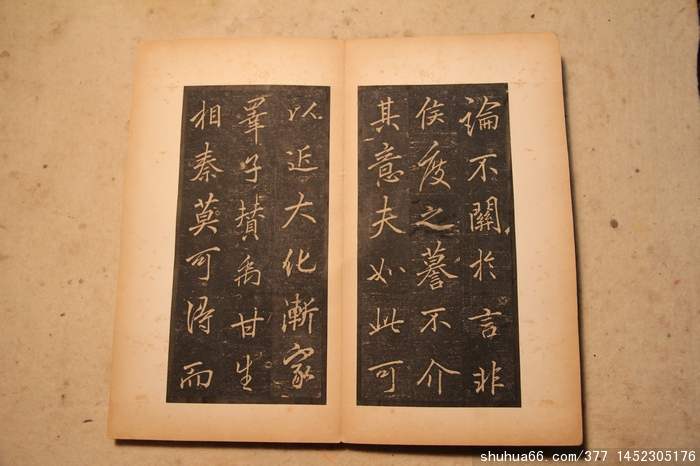 論不關於言非
侯度之謩不介
其意夫如此可
以近大化漸家
睪子賛禹甘生
相秦莫可得而
shuhua66.com/377_1452305176